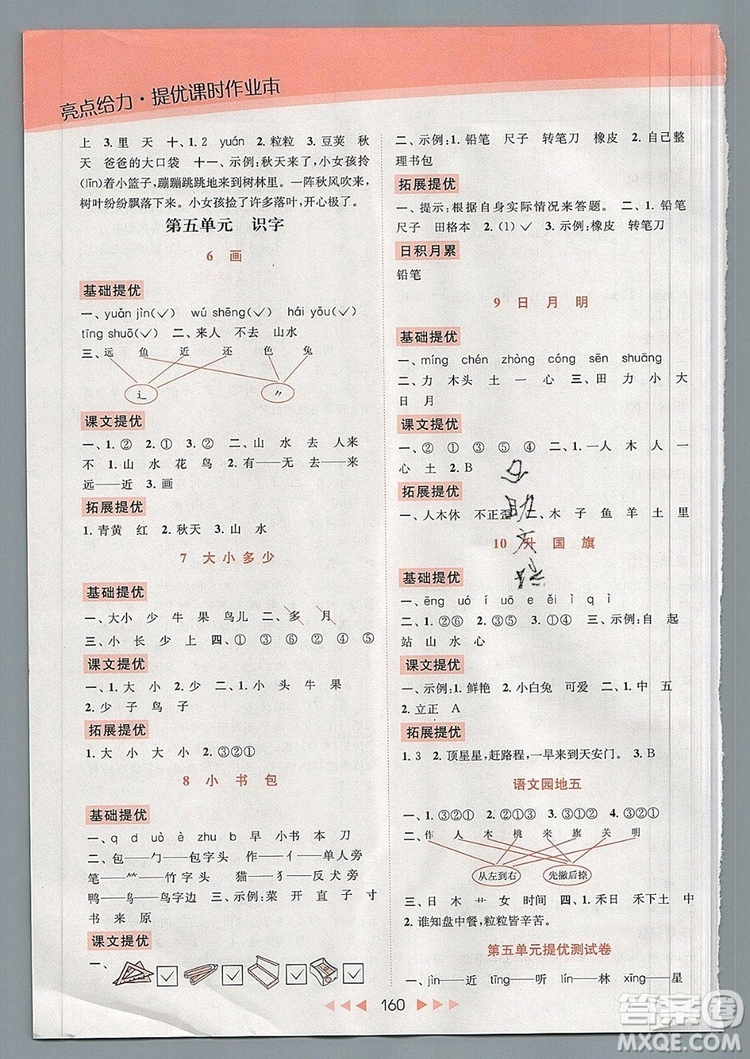 亮点给力·提优课时作业本
上 3.里 天 十、1.2 yuán 2.粒粒 3.豆荚 秋
天 爸爸的大口袋 十一、示例:秋天来了,小女孩拎
(līn)着小篮子,蹦蹦跳跳地来到树林里。一阵秋风吹来,
树叶纷纷飘落下来。小女孩捡了许多落叶,开心极了。
第五单元 识字
6 画
基础提优
一、yuǎn jìn(✓) wú shēng(✓) hái yǒu(✓)
tīng shuō(✓) 二、来人 不去 山水
三、远 鱼 近 还 色 兔
辶 ⺈
课文提优
一、1.② 2.① 3.② 二、山 水 去 人来
不 1.山水花鸟 2.有——无 去——来
远——近 3.画
拓展提优
1.青黄 红 2.秋天 3.山水
7 大小多少
基础提优
一、大小 少 牛 果 鸟儿 二、多 月
三、小 长 少 上 四、① ③ ⑥ ② ④ ⑤
课文提优
一、1.大 小 2.多 少 二、大 小 1.大 小
2.少 子 鸟子
拓展提优
1.大 小 大 小 2.③②①
8 小书包
基础提优
一、q d uò è zh u b 早 小 书 本 刀
二、包——勹——包字头 作——亻——单人旁
笔——⺮——竹字头 猫——犭——反犬旁
鸭——鸟——鸟字边 三、示例:菜 开 直 子 寸
书 来 原
课文提优
一、
二、示例:1.铅笔 尺子 转笔刀 橡皮 2.自己整
理书包
拓展提优
一、提示:根据自身实际情况来答题。 二、1.铅笔
尺子 田格本 2.(1)✓ 3.示例:橡皮 转笔刀
日积月累
铅笔
9 日 月 明
基础提优
一、míng chén zhòng cóng sēn shuāng
二、力 木 头 土 一 心 三、田 力 小 大
日 月
课文提优
一、② ① ③ ⑤ ④ 二、1.一人 木 人 一
心 土 2.B
拓展提优
一、人木休 不正歪 二、木 子 鱼 羊 土 里
10 升 国 旗
基础提优
一、ēng uó í uǒ e ěi q ì q ì
二、1.①③⑥ 2.②④⑤ 三、示例:自 起
站 山 水 心
课文提优
一、示例:鲜艳 2.小白兔 可爱 二、1.国
2.立正 A
拓展提优
1.3 2.顶星星,赶路程,一早来到天安门。 3.B
语文园地五
一、1.③②① 2.③②① 3.①③② 4.③②①
二、作 人 木 桃 来 旗 关 明
从左到右 先撇后捺
三、日 木 艹 女 时间 四、1.禾 日禾 下木
2.谁知盘中餐,粒粒皆辛苦。
第五单元提优测试卷
一、jìn——近 tīng——听 lín——林 xīng——星
160
答案圈
MXQE.COM